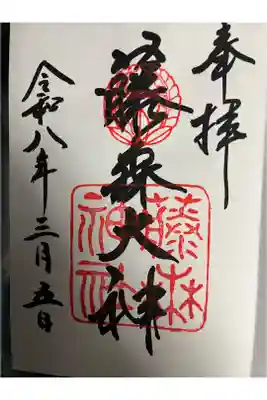 奉拝
藤森大神
藤森
神社
令和八年三月五日